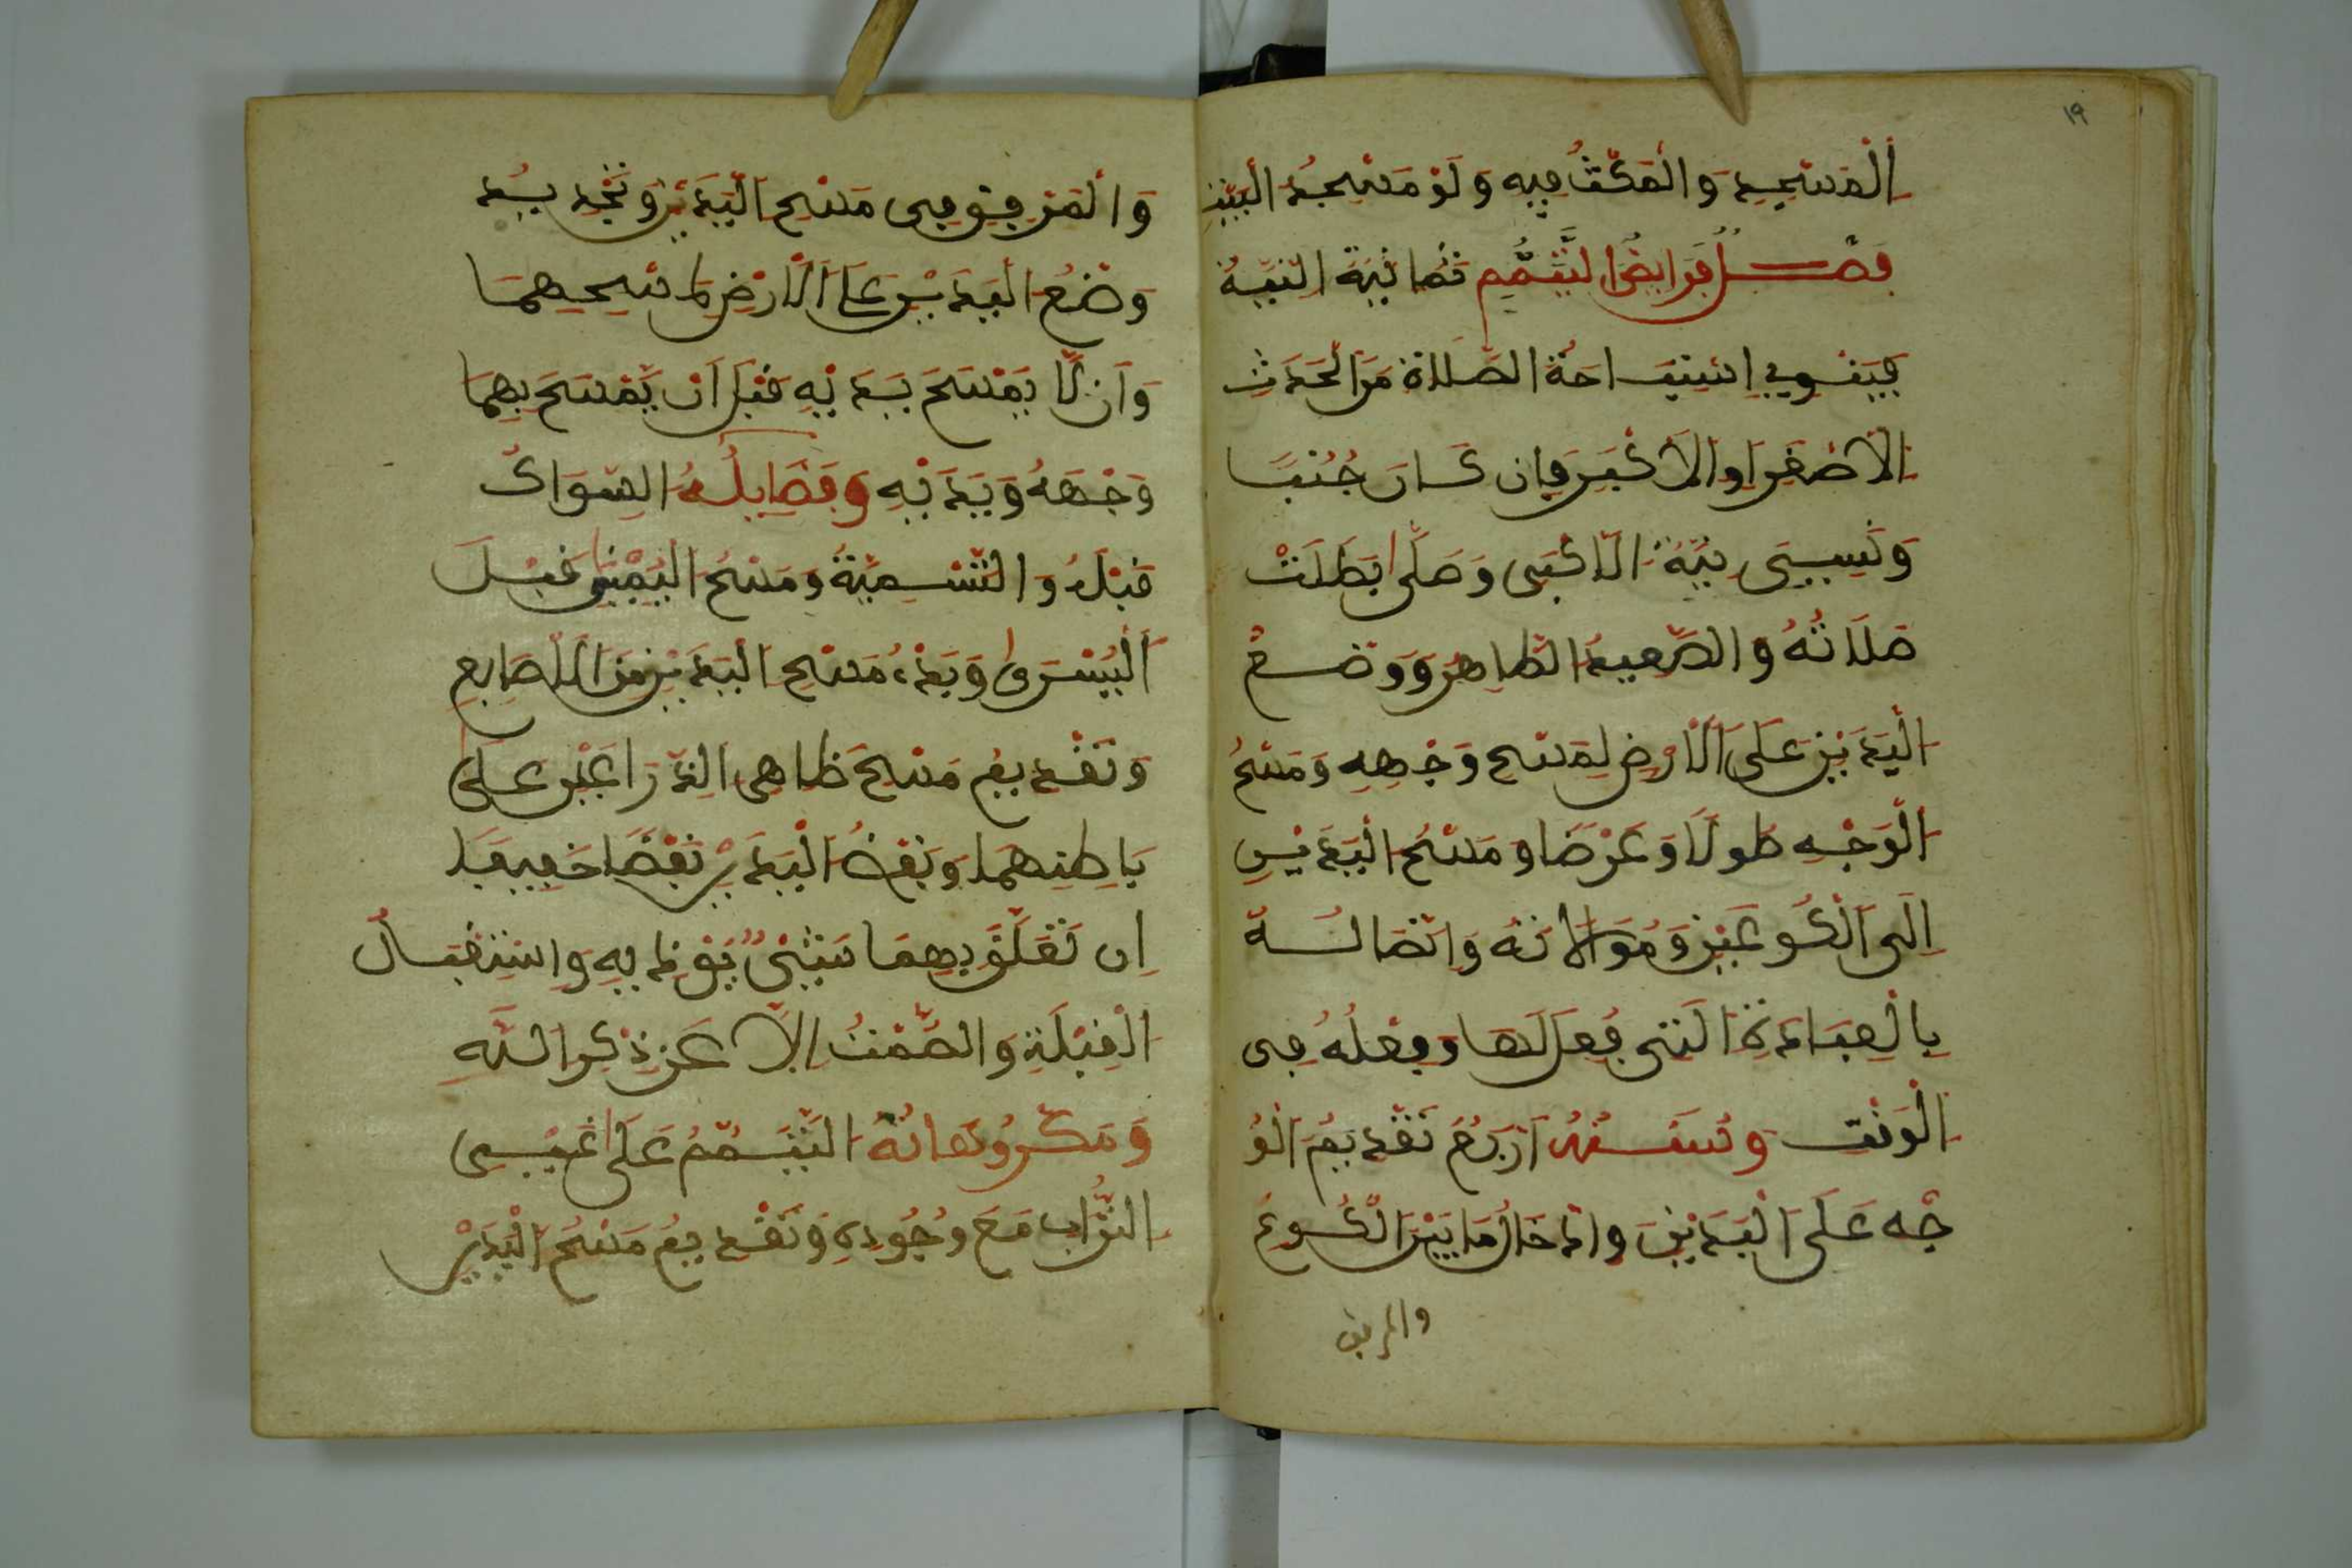 ١٩
الْمَسْجِدِ وَالْمَكْثُ فِيهِ وَلَوْ مَسْجِدُ الْبَيْتِ
فَصْلٌ فَرَايِضُ التَّيَمُّمِ ثَمَانِيَةٌ النِّيَّةُ
فَيَنْوِي اسْتِبَاحَةَ الصَّلَاةِ مِنَ الْحَدَثِ
الْأَصْغَرِ أَوِ الْأَكْبَرِ فَإِن كَانَ جُنُبًا
وَنَسِيَ نِيَّةَ الْأَكْبَرِ وَصَلَّى بَطَلَتْ
صَلَاتُهُ وَالصَّعِيدُ الطَّاهِرُ وَوَضْعُ
الْيَدَيْنِ عَلَى الْأَرْضِ لِمَسْحِ وَجْهِهِ وَمَسْحُ
الْوَجْهِ طُولًا وَعَرْضًا وَمَسْحُ الْيَدَيْنِ
إِلَى الْكُوعَيْنِ وَمُوَالَاتُهُ وَاتِّصَالُهُ
بِالْعِبَادَةِ الَّتِي فُعِلَ لَهَا وَفِعْلُهُ فِي
الْوَقْتِ وَسُنَنُهُ أَرْبَعٌ تَقْدِيمُ الْوَ
جْهِ عَلَى الْيَدَيْنِ وَإِدْخَالُ مَا بَيْنَ الْكُوعِ
والمرفق
وَالْمَرْفِقِ فِي مَسْحِ الْيَدَيْنِ وَتَجْدِيدُ
وَضْعِ الْيَدَيْنِ عَلَى الْأَرْضِ لِمَسْحِهِمَا
وَأَن لَّا يَمْسَحَ بِيَدَيْهِ قَبْلَ أَن يَّمْسَحَ بِهِمَا
وَجْهَهُ وَيَدَيْهِ وَفَضَايِلُهُ السِّوَاكُ
قَبْلَهُ وَالتَّسْمِيَّةُ وَمَسْحُ الْيُمْنَى قَبْلَ
الْيُسْرَى وَبَدْءُ مَسْحِ الْيَدَيْنِ مِنَ الْأَصَابِعِ
وَتَقْدِيمُ مَسْحِ ظَاهِرِ الذِّرَاعَيْنِ عَلَى
بَاطِنِهِمَا وَنَفْضُ الْيَدَيْنِ نَفْضًا خَفِيفًا
إِن تَعَلَّقَ بِهِمَا شَيْءٌ يُوذِيهِ وَاسْتِقْبَالُ
الْقِبْلَةِ وَالصَّمْتُ إِلَّا عَن ذِكْرِ اللَّهِ
وَمَكْرُوهَاتُهُ التَّيَمُّمُ عَلَى غَيْرِ
التُّرَابِ مَعَ وُجُودِهِ وَتَقْدِيمُ مَسْحِ الْيَدَيْنِ